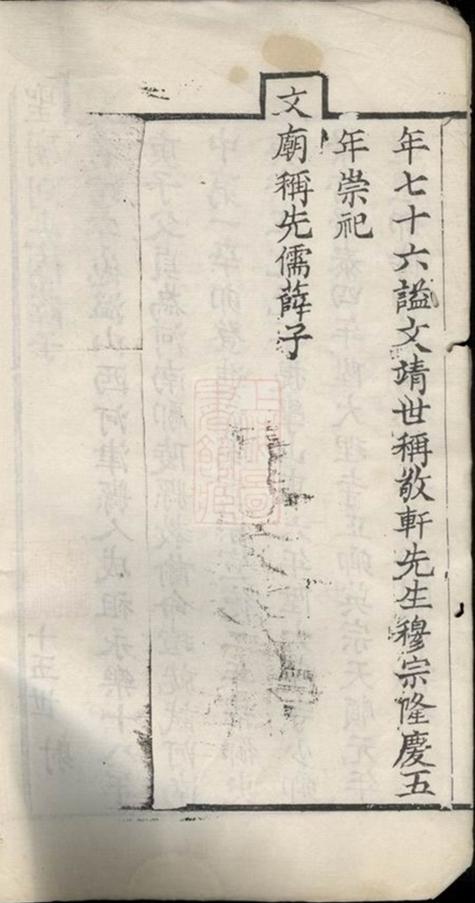 年七十六謚文靖世稱敬軒先生穆宗隆慶五
年崇祀
文廟稱先儒薛子